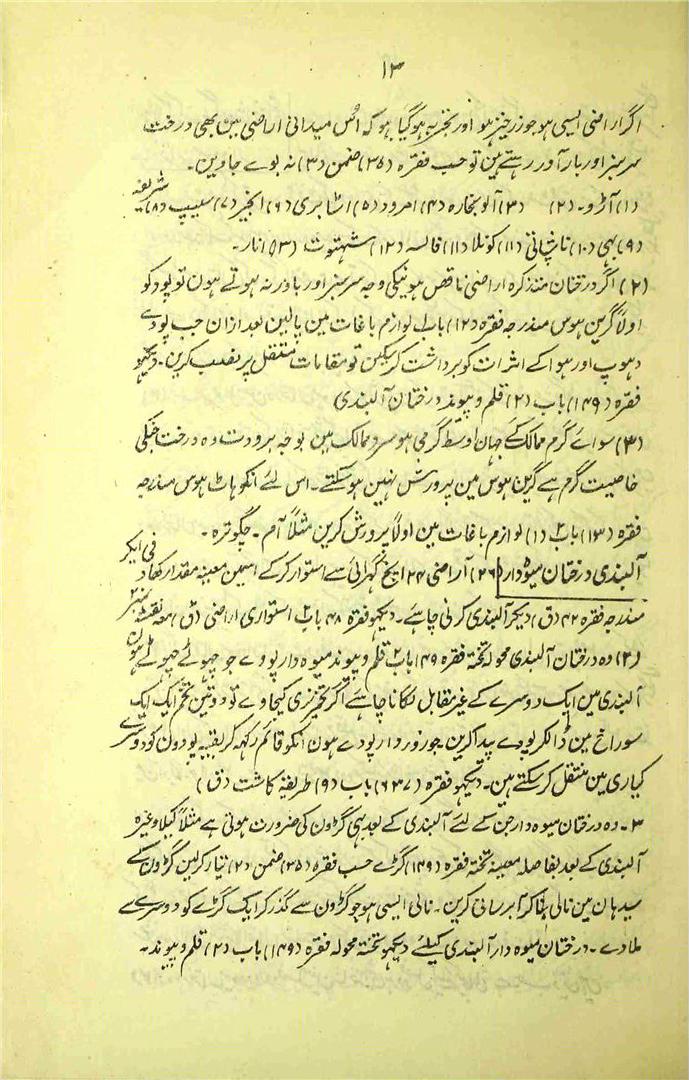 ۱۳
اگر اراضی ایسی ہو جو زرخیز ہو اور تجربہ ہو گیا ہو کہ اُس میدانی اراضی مین بھی درخت
سرسبز اور بارآور رہتے ہین تو حسب فقرہ (۳۵) ضمن (۳) نہ بوے جاوین۔
(۱) آڑو۔ (۲) (۳) آلو بخارہ (۴) امرود (۵) اسٹابری (۶) انجیر (۷) سیب (۸) شریفہ
(۹) بہی (۱۰) ناشپاتی (۱۱) کونلا (۱۱) فالسہ (۱۲) شہتوت (۱۳) انار۔
(۲) اگر درختان متذکرہ اراضی ناقص ہونیکی وجہ سرسبز اور باور نہ ہوتے ہون تو پود کو
اولاً گرین ہوس مندرجہ فقرہ (۱۲) باب لوازم باغات مین پالین بعد ازان جب پودے
دہوپ اور ہوا کے اثرات کو برداشت کر سکین تو مقامات مستقل پر نصب کرین۔ دیکھو
فقرہ (۱۴۹) باب (۲) قلم و پیوند درختان آلبندی
(۳) سواے گرم ممالک کے جہان اوسط گرمی ہو سرد ممالک مین بوجہ برودت وہ درخت جنکی
خاصیت گرم ہے گرین ہوس مین پرورش نہین ہو سکتے۔ اس لئے انکو ہاٹ ہوس مندرجہ
فقرہ (۱۳) باب (۱) لوازم باغات مین اولاً پرورش کرین مثلاً آم۔ چکوترہ۔
آلبندی درختان میوہ دار (۲۶) آراضی ۲۴ انچ گہرائی سے استوار کرکے اسمین معینہ مقدار کھاد فی ایکر
مندرجہ فقرہ ۴۲ (ق) دیکر آلبندی کرنی چاہئے۔ دیکھو فقرہ ۴۸ باب استواری اراضی (ق) معہ نقشہ نمبر
(۲) وہ درختان آلبندی محولہ تختہ فقرہ ۱۴۹ باب قلم و پیوند میوہ دار پودے جو چہوٹے چہوٹے ہون
آلبندی مین ایک دوسرے کے غیر مقابل لگانا چاہئے اگر تخمریزی کیجاوے تو دو تین تخم ایک ایک
سوراخ مین ڈالکر پودے پیدا کرین۔ جو زوردار پودے ہون انکو قائم رکھہ کر بقیہ پودون کو دوسرے
کیاری مین منتقل کر سکتے ہین۔ دیکھو فقرہ (۶۳۷) باب (۹) طریقہ کاشت (ق)
۳۔ وہ درختان میوہ دار جن کے لئے آلبندی کے بعد بہی گڑون کی ضرورت ہوتی ہے مثلاً کیلا وغیرہ
آلبندی کے بعد بفاصلہ معینہ تختہ فقرہ (۱۴۹) گڑے حسب فقرہ (۳۵) ضمن (۲) تیار کرلین گڑون کے
سیدہان مین نالی بنا کر آبرسانی کرین۔ نالی ایسی ہو جو گڑون سے گذر کر ایک گڑے کو دوسرے سے
ملا دے۔ درختان میوہ دار آلبندی کیلئے دیکھو تختہ محولہ فقرہ (۱۴۹) باب (۲) قلم و پیوند۔